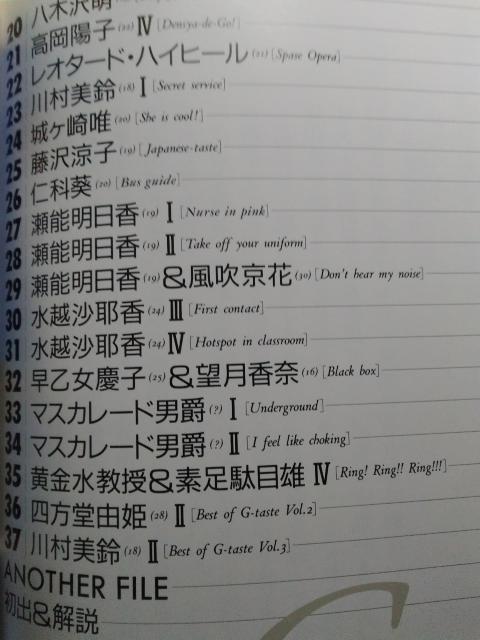 20 八木沢明
21 高岡陽子(22)Ⅳ[Densya-de-Go!]
22 レオタード・ハイヒール(21)[Spase Opera]
23 川村美鈴(18)Ⅰ[Secret service]
24 城ヶ崎唯(20)[She is cool!]
25 藤沢涼子(19)[Japanese-taste]
26 仁科葵(20)[Bus guide]
27 瀬能明日香(19)Ⅰ[Nurse in pink]
28 瀬能明日香(19)Ⅱ[Take off your uniform]
29 瀬能明日香(19)&風吹京花(30)[Don't hear my noise]
30 水越沙耶香(24)Ⅲ[First contact]
31 水越沙耶香(24)Ⅳ[Hotspot in classroom]
32 早乙女慶子(25)&望月香奈(16)[Black box]
33 マスカレード男爵(?)Ⅰ[Underground]
34 マスカレード男爵(?)Ⅱ[I feel like choking]
35 黄金水教授&素足駄目雄Ⅳ[Ring! Ring!! Ring!!!]
36 四方堂由姫(28)Ⅱ[Best of G-taste Vol.2]
37 川村美鈴(18)Ⅱ[Best of G-taste Vol.3]
ANOTHER FILE
初出&解説